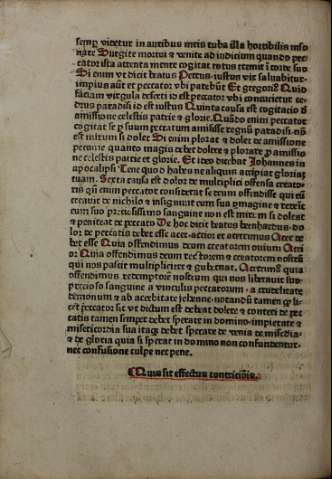 semp videtur in auribus meis tuba illa horribilis inso
nare Surgite mortui & venite ad iudicium quando pec
cator ista attente mente cogitat totus tremit i corde suo
Si enim vt dicit beatus Petrus iustus vix saluabitur
impius aut et peccator vbi parebūt Et gregori9 Quid
faciam virgula deserti id est peccator vbi concutietur ce
drus paradisi id est iustus Quinta causa est cogitacio d
amissione celestis patrie & glorie. Quādo enim peccator
cogitat se p suum peccatum amisisse regnū paradisi nō
est mirum si dolet Si enim plorat & dolet de amissione
pecunie quanto magis debet dolere & plorare p amissio
ne celestis patrie et glorie. Et ideo dicebat Johannes in
apocalipsi Tene quod habes ne alius accipiat gloriaz
tuam. Sexta causa est dolor de multiplici offensa creato
ris qn enim peccator considerat se deum offendisse qui eū
creauit de nichilo & insigniuit eum sua ymagine & redeit
eum suo preciosissimo sanguine non est mirum si doleat
& peniteat de peccato De hoc dicit beatus bernhardus do
lor de peccatis debet esse acer acrior et acerrimus Acer de
bet esse Quia offendimus deum creatorem omium Acri
or Quia offendimus deum rectorem & creatorem nostrū
qui nos pascit multipliciter & gubernat. Acerrim9 quia
offendimus redemptorē nostrum qui nos liberauit suo
precioso sanguine a vinculo peccatorum a crudelitate
demonum & ab acerbitate iehenne notandū tamen q li
cet peccator sit vt dictum est debeat dolere & conteri de pec
catis tamen semper debet sperare in domino impietate &
misericordia sua itaq debet sperare de venia de misedia
& de gloria quia si sperat in domino non confundentur
nec confusione culpe nec pene.
Quis sit effectus contricionis.